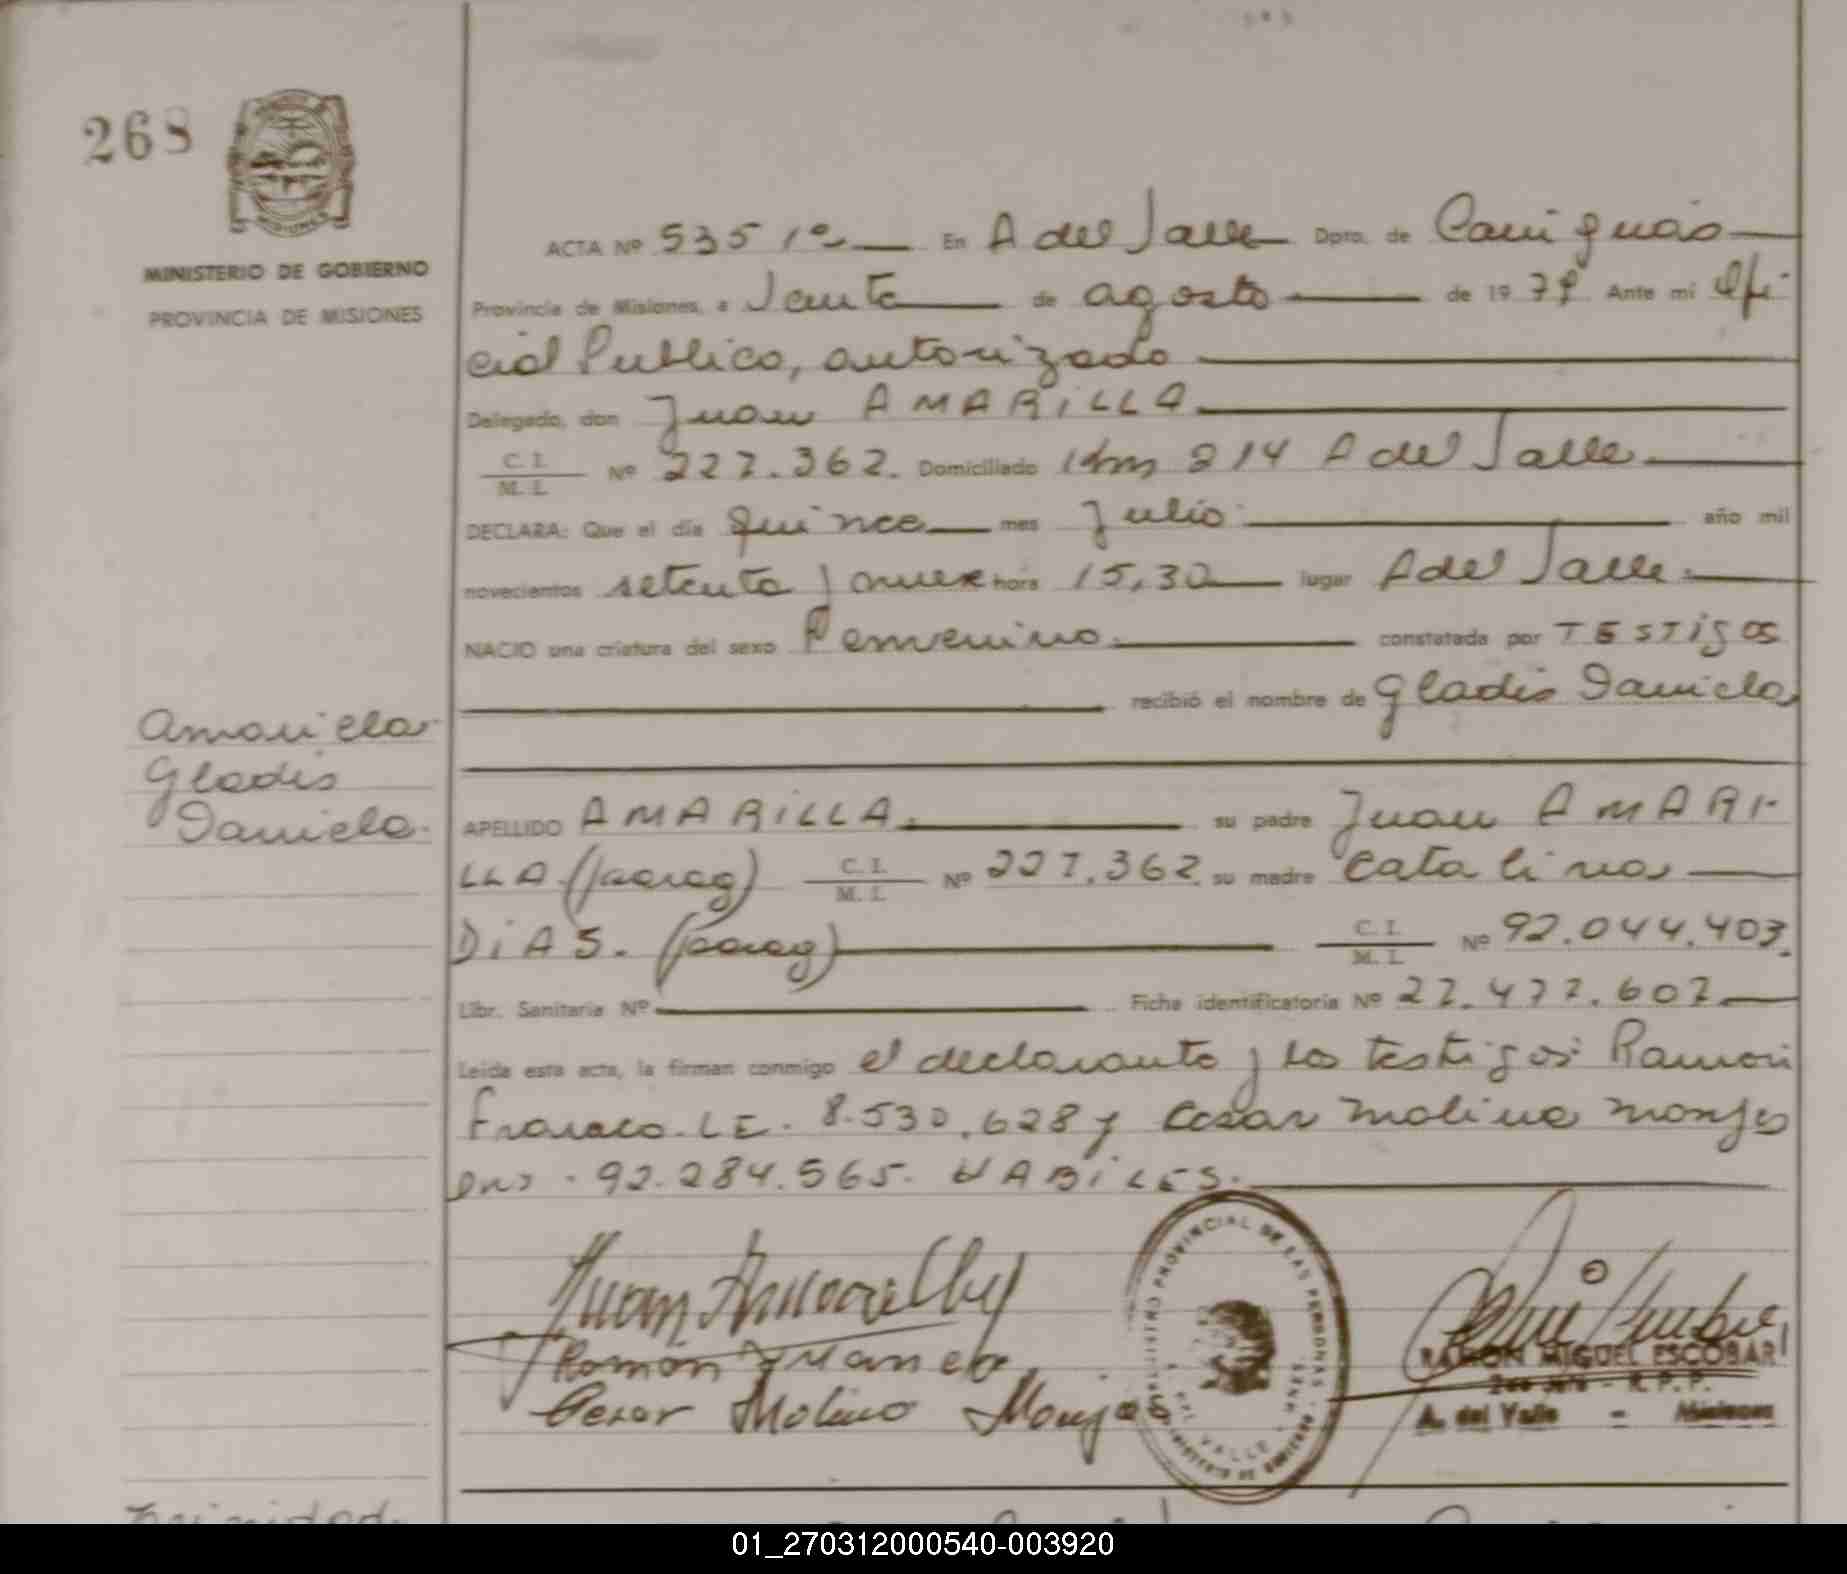 268
MINISTERIO DE GOBIERNO
PROVINCIA DE MISIONES
ACTA Nº 535 1º En A del Valle Dpto. de Cainguás
Provincia de Misiones, a Veinte de agosto de 1979 Ante mí Ofi
cial Publico, autorizado
Delegado, don Juan AMARiLLA
C. I. / M. I. Nº 227.362. Domiciliado Km 214 A del Valle
DECLARA: Que el día quince mes Julio año mil
novecientos setenta y nueve hora 15,30 lugar A del Valle
NACIO una criatura del sexo Femenino constatada por TESTiGOS
recibió el nombre de Gladis Daniela
Gladis
Daniela
APELLIDO AMARiLLA su padre Juan AMARI-
LLA (parag) C. I. / M. I. Nº 227.362 su madre Catalina
DiAS. (parag) C. I. / M. I. Nº 92.044.403.
Libr. Sanitaria Nº Ficha identificatoria Nº 27.477.607
Leida esta acta, la firman conmigo el declarante y los testigos: Ramon
L.E. 8.530.628 y Cesar Molina Monjes
92.284.565. HABiLES.
Ramón
Cesar Molino Monjes
PROVINCIAL DE LAS PERSONAS
VALLE
RAMON MIGUEL ESCOBAR
2do Jefe - R. P. P.
A. del Valle - Misiones
01_270312000540-003920